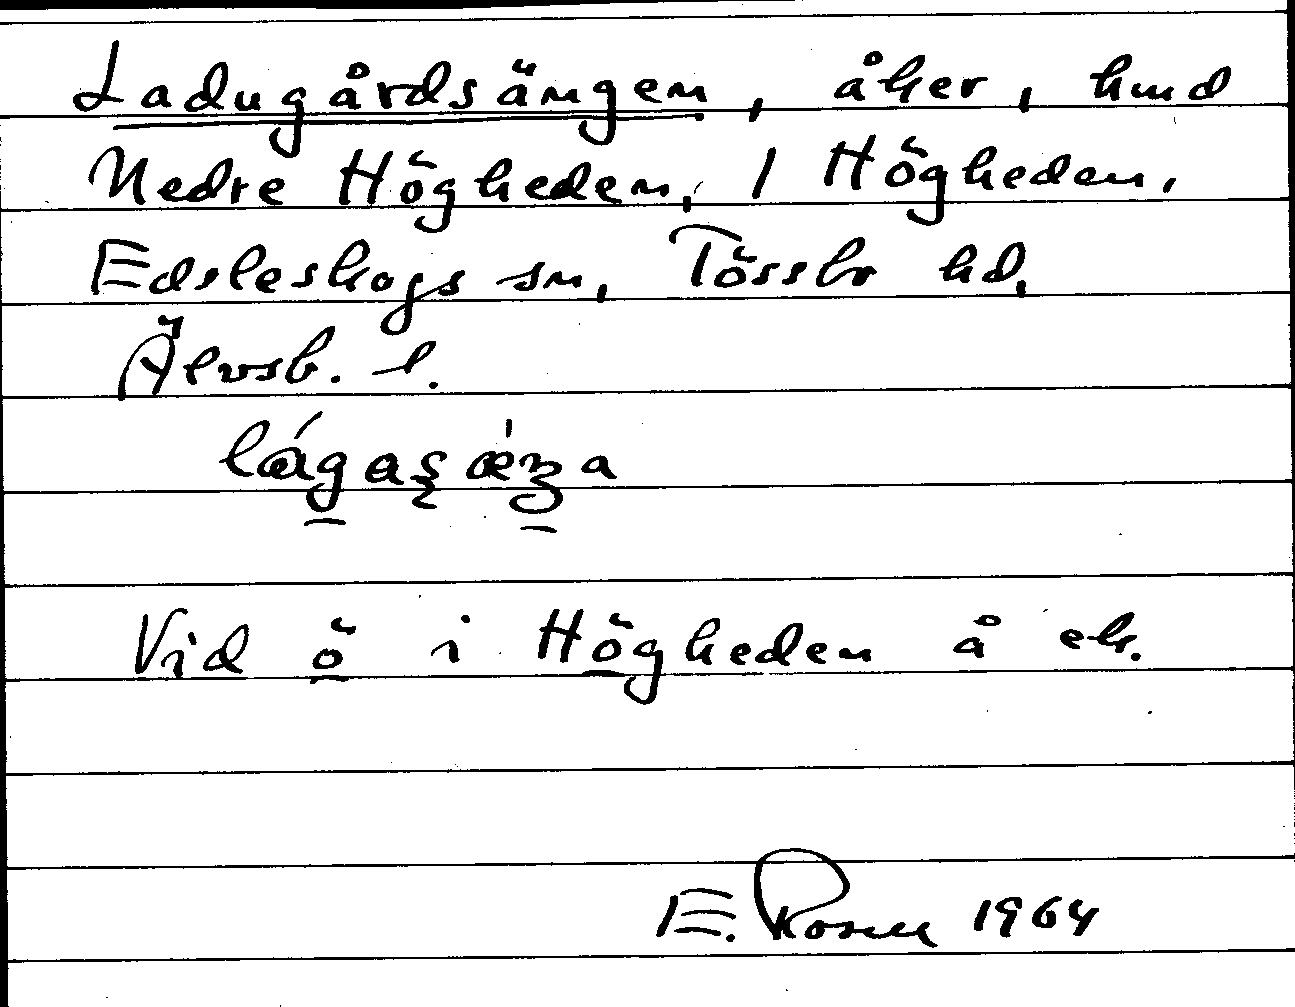 Ladugårdsängen, åker, hmd
Nedre Högheden, 1 Högheden,
Edsleskogs sn, Tössbo hd,
Älvsb. l.
Vid ö i Högheden å ek.
E. Rosén 1964